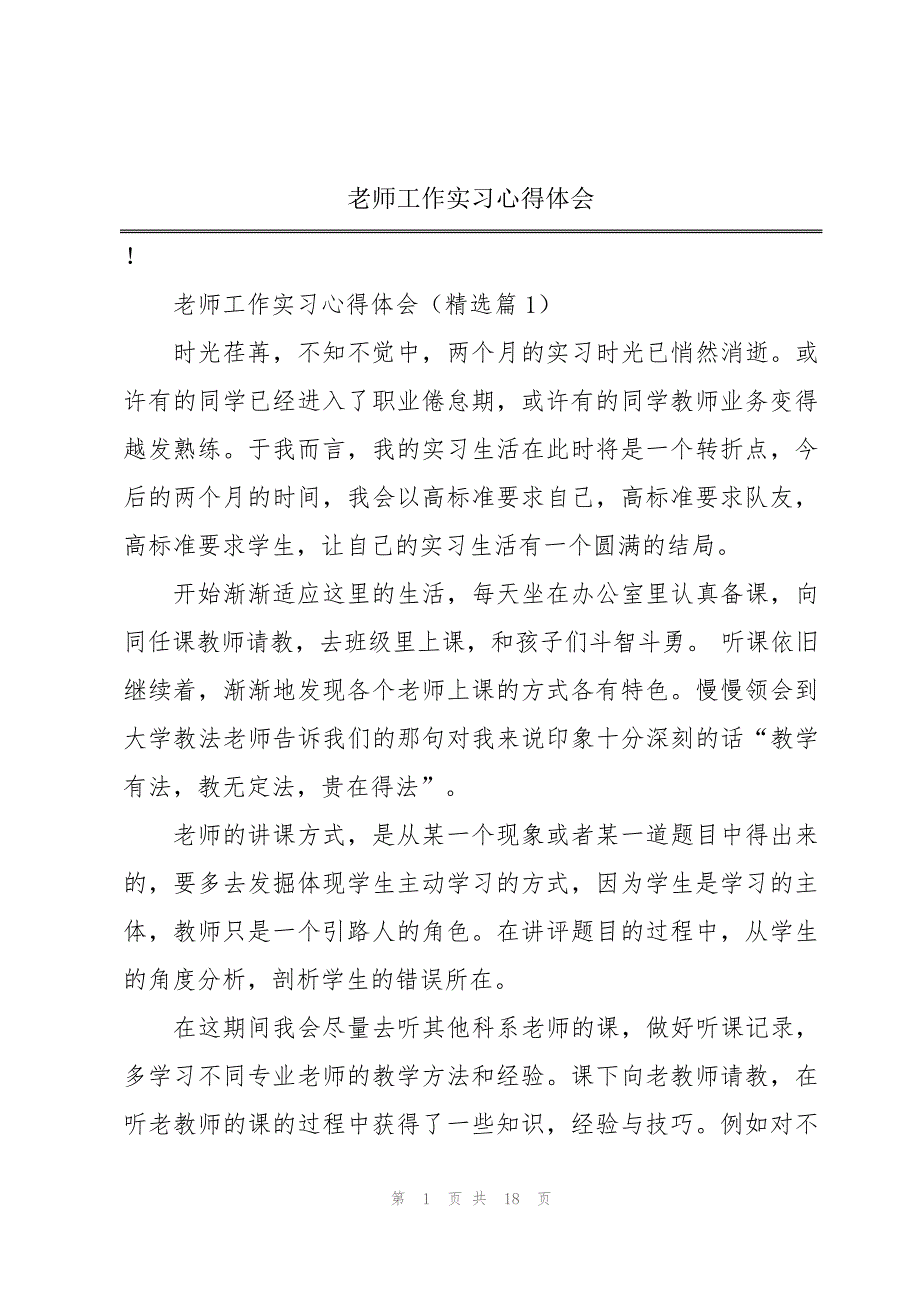 老师工作实习心得体会
！
老师工作实习心得体会（精选篇1）
时光荏苒，不知不觉中，两个月的实习时光已悄然消逝。或
许有的同学已经进入了职业倦怠期，或许有的同学教师业务变得
越发熟练。于我而言，我的实习生活在此时将是一个转折点，今
后的两个月的时间，我会以高标准要求自己，高标准要求队友，
高标准要求学生，让自己的实习生活有一个圆满的结局。
开始渐渐适应这里的生活，每天坐在办公室里认真备课，向
同任课教师请教，去班级里上课，和孩子们斗智斗勇。 听课依旧
继续着，渐渐地发现各个老师上课的方式各有特色。慢慢领会到
大学教法老师告诉我们的那句对我来说印象十分深刻的话“教学
有法，教无定法，贵在得法”。
老师的讲课方式，是从某一个现象或者某一道题目中得出来
的，要多去发掘体现学生主动学习的方式，因为学生是学习的主
体，教师只是一个引路人的角色。在讲评题目的过程中，从学生
的角度分析，剖析学生的错误所在。
在这期间我会尽量去听其他科系老师的课，做好听课记录，
多学习不同专业老师的教学方法和经验。课下向老教师请教，在
听老教师的课的过程中获得了一些知识，经验与技巧。例如对不
第 1 页 共 18 页